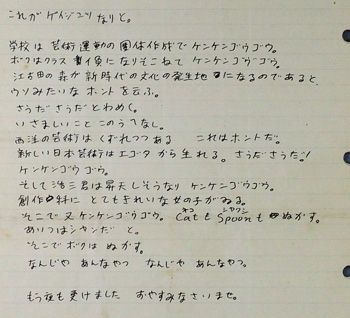 これがゲイジツなりと。
学校は芸術運動の團体作成でケンケンゴウゴウ。
ボクはクラス動員になりそこねてケンケンゴウゴウ。
江古田の森が新時代の文化の発生地になるのであると、
ウソみたいなホントを云ふ。
さうださうだとわめく。
いさましいことこのうへなし。
西洋の芸術はくずれつつある これはホントだ。
新しい日本芸術はエゴタから生れる。さうださうだ!
ケンケンゴウゴウ。
そして浩三君は昇天しそうなりケンケンゴウゴウ。
創作科にとてもきれいな女の子がゐる。
そこで又ケンケンゴウゴウ。CatもSpoonもぬかす。
ネコ シャワン
あいつはシャンだと。
そこでボクはぬかす。
なんじやあんなやつ なんじやあんなやつ。
もう夜も更けました おやすみなさいませ。